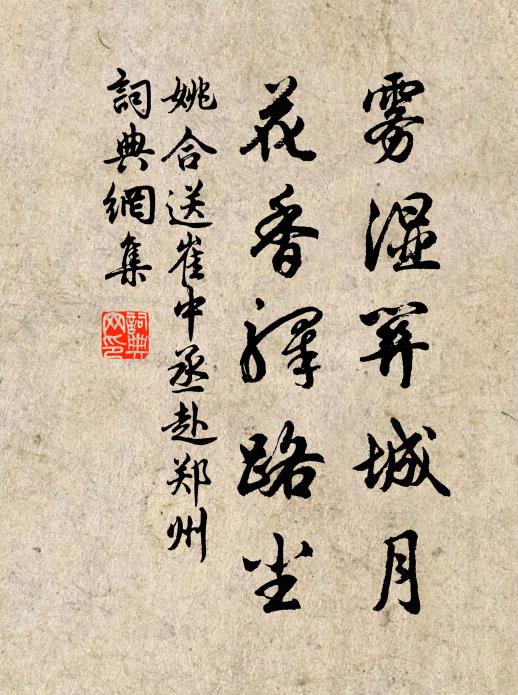 雾湿关城月
花香驿路尘
姚合送崔中丞赴郑州
詞典網集
詞典网印